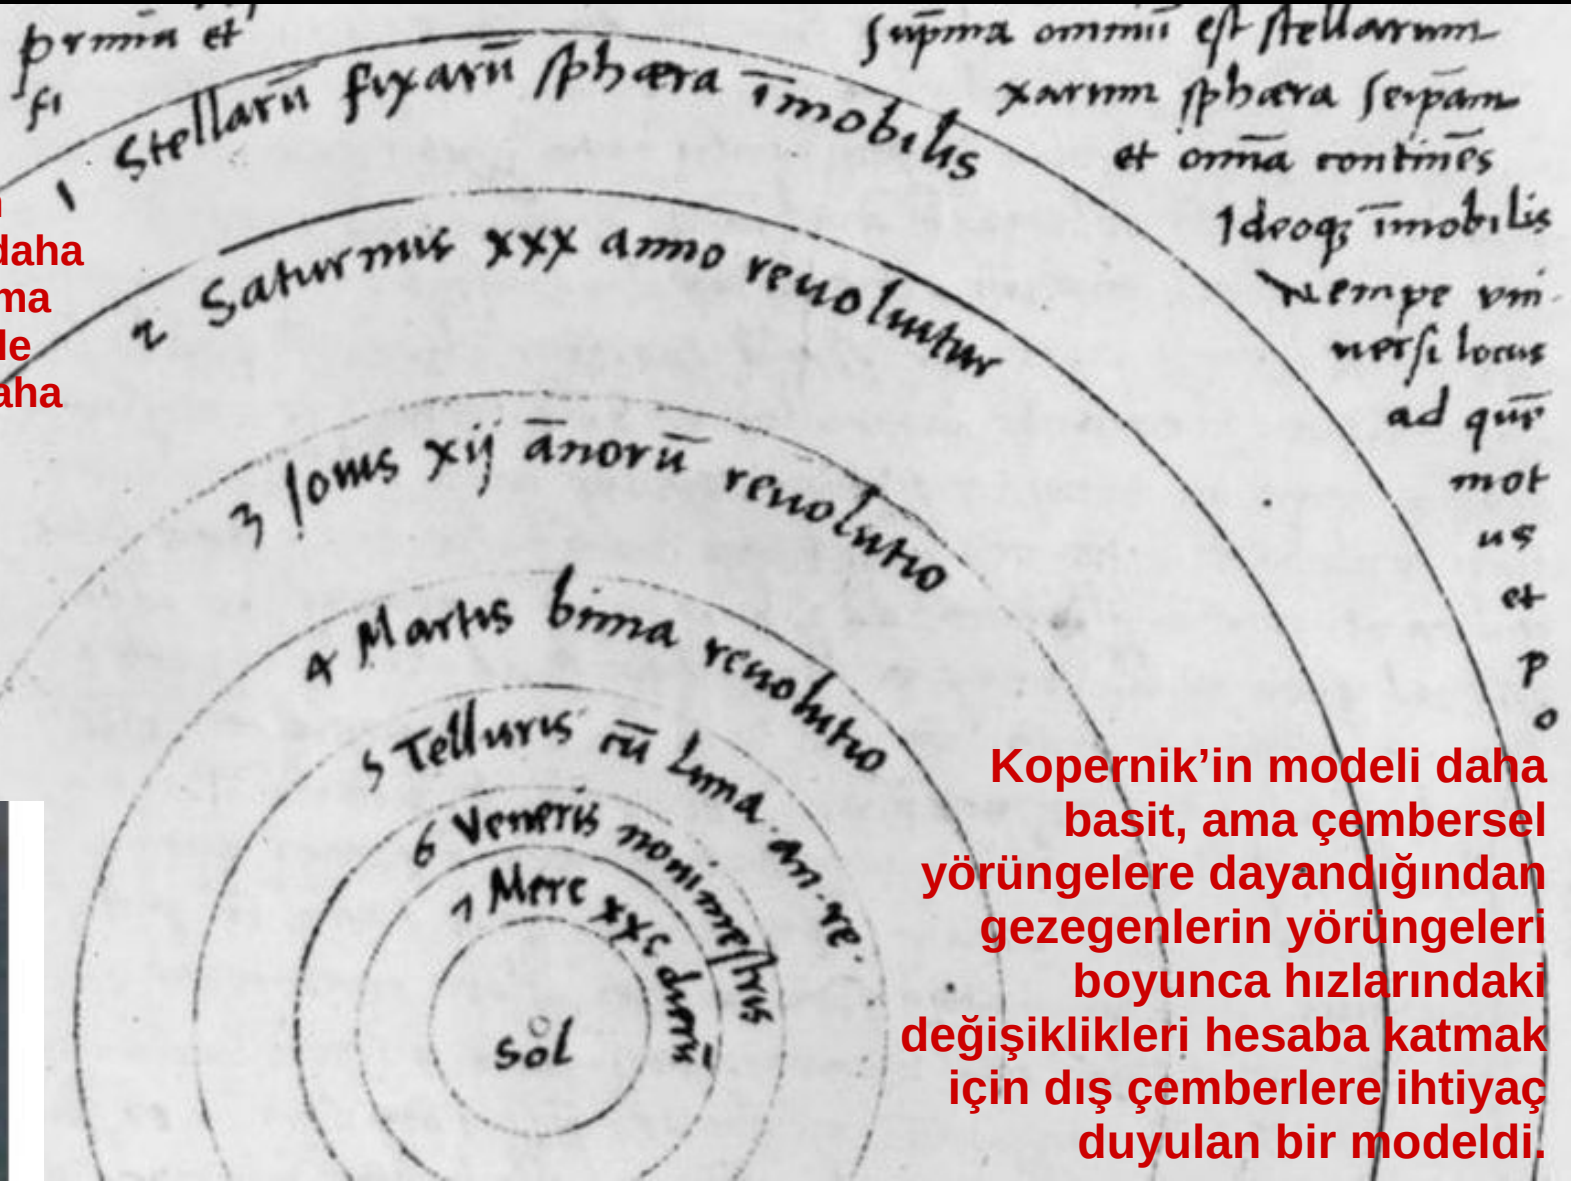 prima et
fi
1 Stellarū fixarū sphæra īmobilis
2 Saturnus xxx anno reuoluitur
3 Iouis xij ānorū reuolutio
4 Martis bima reuolutio
5 Telluris cū Luna. an. re.
6 Veneris nonimestris
7 Merc xxc dierū
sol
sup̄ma omniū est stellarum
xarum sphæra seip̄am
et om̄ia continēs
Ideoq; īmobilis
Nempe vni
uersi locus
ad quē
mot
us
et
p
o
daha
ma
le
aha
Kopernik’in modeli daha
basit, ama çembersel
yörüngelere dayandığından
gezegenlerin yörüngeleri
boyunca hızlarındaki
değişiklikleri hesaba katmak
için dış çemberlere ihtiyaç
duyulan bir modeldi.